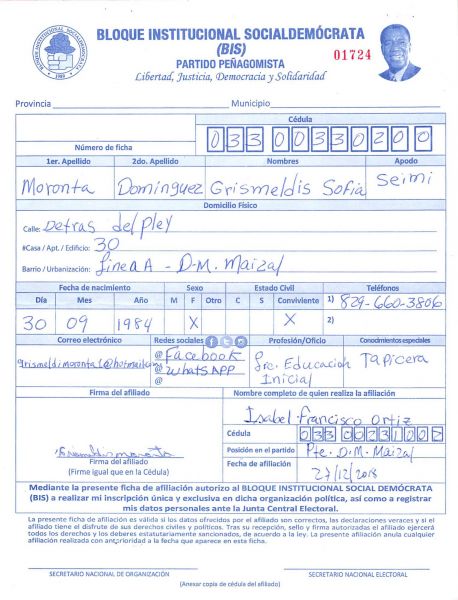 BLOQUE INSTITUCIONAL SOCIALDEMÓCRATA
(BIS)
PARTIDO PEÑAGOMISTA
Libertad, Justicia, Democracia y Solidaridad
01724
Provincia Municipio
Cédula
Número de ficha 03300330200
1er. Apellido 2do. Apellido Nombres Apodo
Moronta Dominguez Grismeldis Sofia Seimi
Domicilio Físico
Calle: Detras del pley
#Casa / Apt. / Edificio: 30
Barrio / Urbanización: Linea A - D.M. Maizal
Fecha de nacimiento Sexo Estado Civil Teléfonos
Día Mes Año M F Otro C S Conviviente 1) 829-660-3806
30 09 1984 X X 2)
Correo electrónico Redes sociales Profesión/Oficio Conocimientos especiales
@ Facebook
@ WhatsAPP
@
Educacion
Inicial
Tapicera
Firma del afiliado Nombre completo de quien realiza la afiliación
Isabel Francisco Ortiz
Cédula
Posición en el partido Pte. D.M. Maizal
Firma del afiliado
(Firme igual que en la Cédula)
Fecha de afiliación 27/12/2018
Mediante la presente ficha de afiliación autorizo al BLOQUE INSTITUCIONAL SOCIAL DEMÓCRATA
(BIS) a realizar mi inscripción única y exclusiva en dicha organización política, así como a registrar
mis datos personales ante la Junta Central Electoral.
La presente ficha de afiliación es válida si los datos ofrecidos por el afiliado son correctos, las declaraciones veraces y si el
afiliado tiene el disfrute de sus derechos civiles y políticos. Tras su recepción, sello y firma autorizadas el afiliado ejercerá
todos los derechos y los deberes estatutariamente sancionados, de acuerdo a la ley. La presente afiliación anula cualquier
afiliación realizada con anterioridad a la fecha que aparece en esta ficha.
SECRETARIO NACIONAL DE ORGANIZACIÓN SECRETARIO NACIONAL ELECTORAL
(Anexar copia de cédula del afiliado)